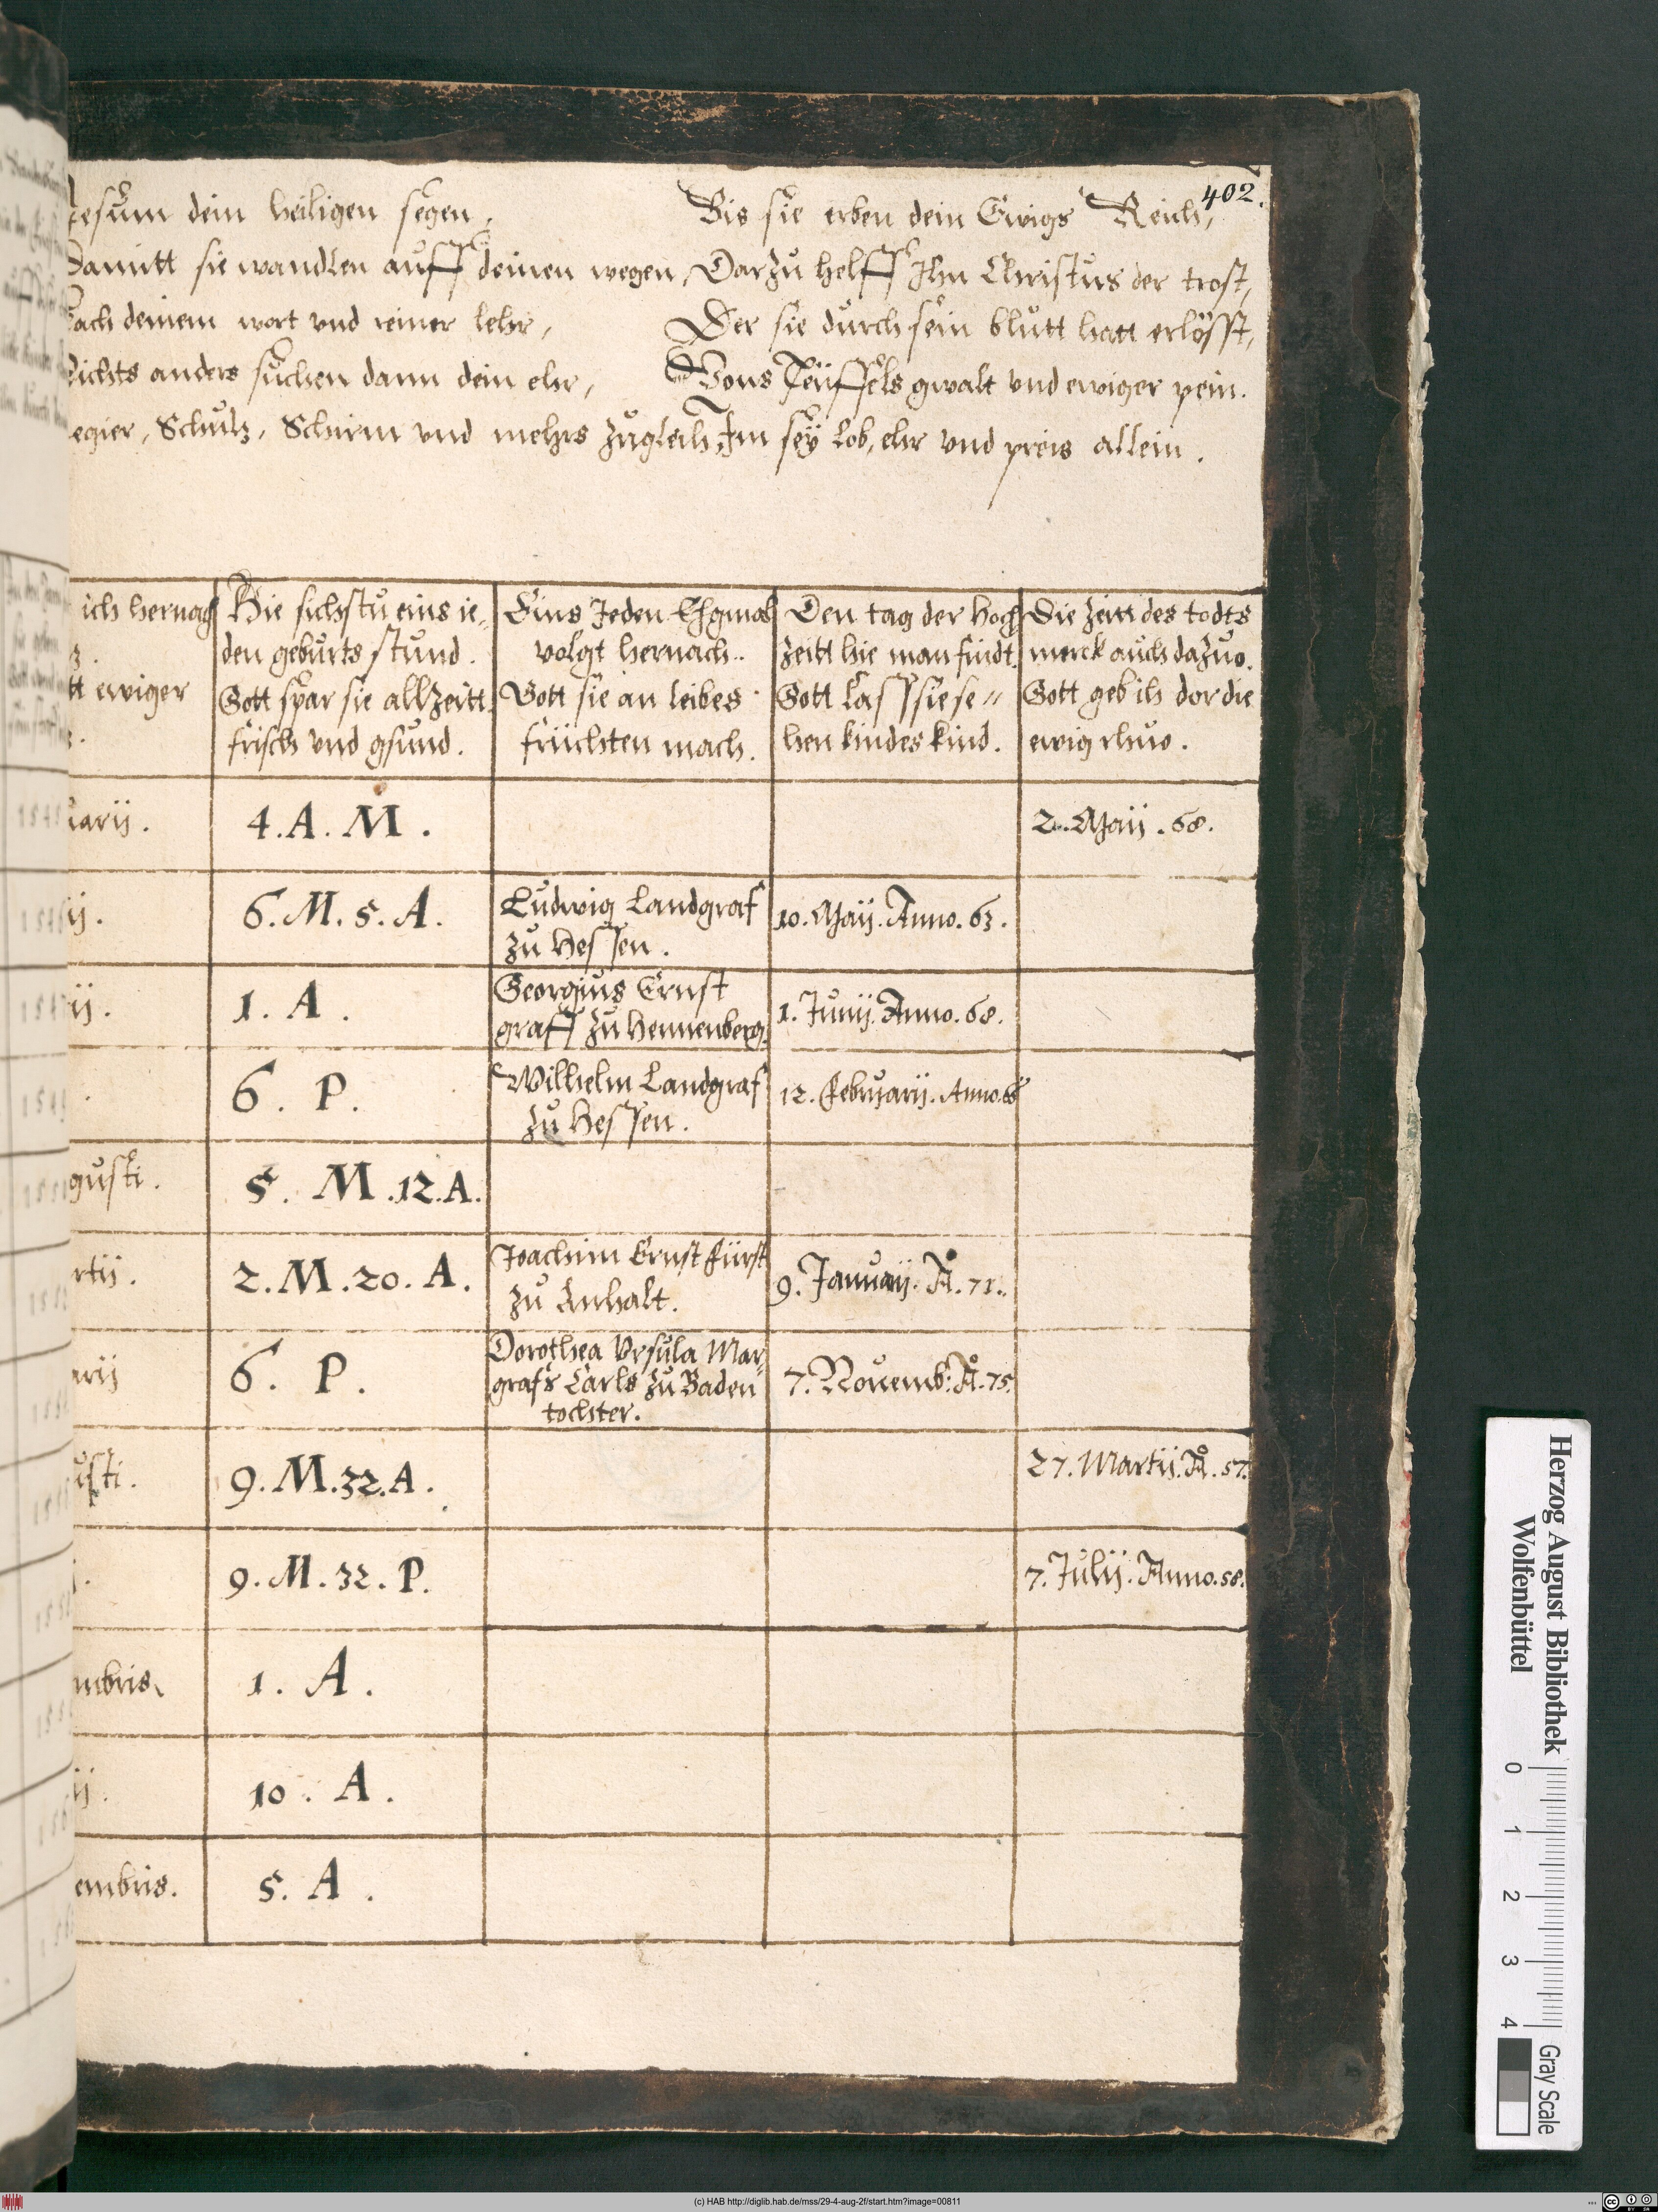 402.
Jesum dein heiligen segen,
Damitt sie wandlen auff deinen wegen,
Nach deinem wort vnd reiner lehr,
Nichts anders suchen dann dein ehr,
Regier, Schutz, Schirm vnd mehrs zugleich,
Bis sie erben dein Ewigs Reich,
Darzu helff Ihn Christus der trost,
Der sie durch sein blutt hatt erlösst,
Vons Teüffels gwalt vnd ewiger pein.
Im seÿ Lob, ehr vnd preis allein.
ich hernach
ewiger
Hie sichstu eins ie„
den geburts stund.
Gott spar sie allzeitt
frisch vnd gsund.
Eins Jeden Ehgmal
volgt hernach..
Gott sie an leibes
früchten mach.
Den tag der Hoch
zeitt hie man findt.
Gott lass sie se„
hen kindes kind.
Die zeitt des todts
merck auch dazuo.
Gott geb ih dor die
ewig rhuo.
arij. 4. A. M. 2. Maij. 68.
ij. 6. M. 5. A. Ludwig Landgraf
zu Hessen. 10. Maij. Anno. 63.
ij. 1. A. Georgius Ernst
graff zu Hennenberg. 1. Junij. Anno. 68.
6. P. Wilhelm Landgraf
zu Hessen. 12. februarij. Anno. 66
gusti. 5. M. 12. A.
rtij. 2. M. 20. A. Joachim Ernst fürst
zu Anhalt. 9. Januarij. A°. 71.
arij 6. P. Dorothea Vrsula Mar„
grafs Carls zu Baden
tochter. 7. Nouemb: A°. 75.
usti. 9. M. 32. A. 27. Martij. A°. 57.
9. M. 32. P. 7. Julij. Anno. 58.
mbris. 1. A.
ij. 10. A.
embris. 5. A.
Herzog August Bibliothek
Wolfenbüttel
0 1 2 3 4
Gray Scale
(c) HAB http://diglib.hab.de/mss/29-4-aug-2f/start.htm?image=00811